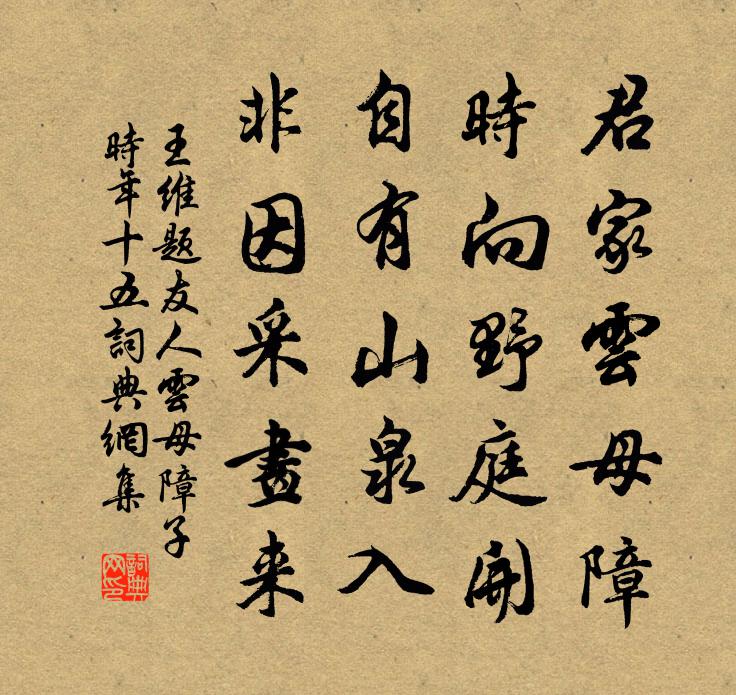 君家雲母障
時向野庭開
自有山泉入
非因采畫来
王维题友人雲母障子
時年十五詞典網集
詞典
网印